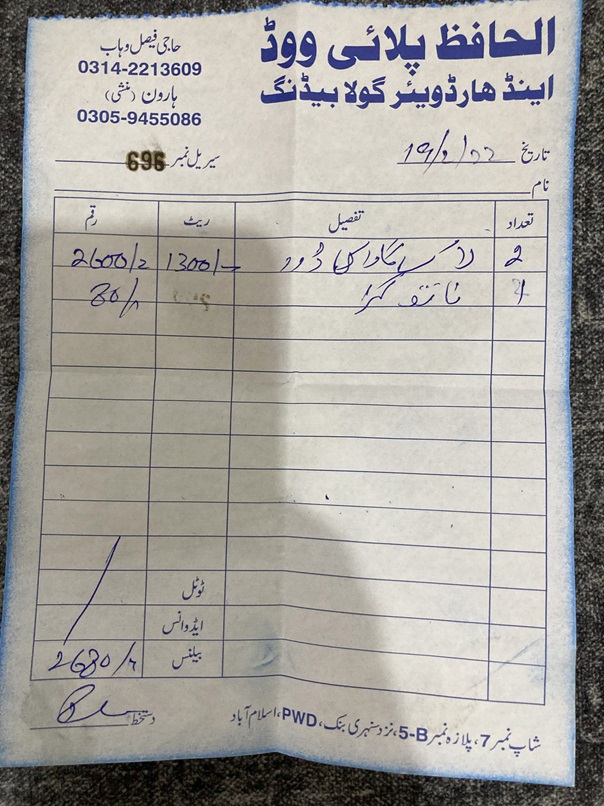 الحافظ پلائی ووڈ
اینڈ ھارڈویئر گولا بیڈنگ
حاجی فیصل وہاب
0314-2213609
ہارون (منشی)
0305-9455086
تاریخ 19/2/22
سیریل نمبر 696
نام
تعداد تفصیل ریٹ رقم
2 لاک 1300/- 2600/-
1 80/-
ٹوٹل
ایڈوانس
بیلنس 2680/-
دستخط
شاپ نمبر 7، پلازہ نمبر 5-B، نزد سنہری بنک، PWD، اسلام آباد